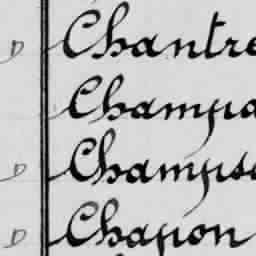 D Chantre
Champa
D Champs
D Chapon